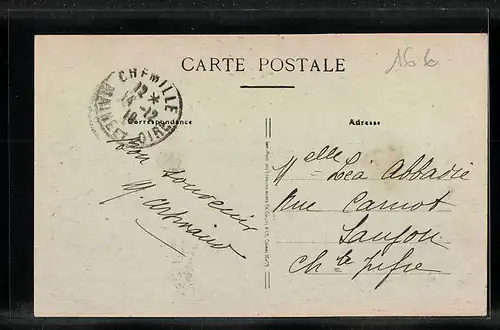 16 b
CARTE POSTALE
CHEMILLÉ
12 *
12
MAINE ET LOIRE
Correspondance
Adresse
Bon souvenir
Melle Léa Abbadie
Rue Carnot
Saujon
Chte Infre